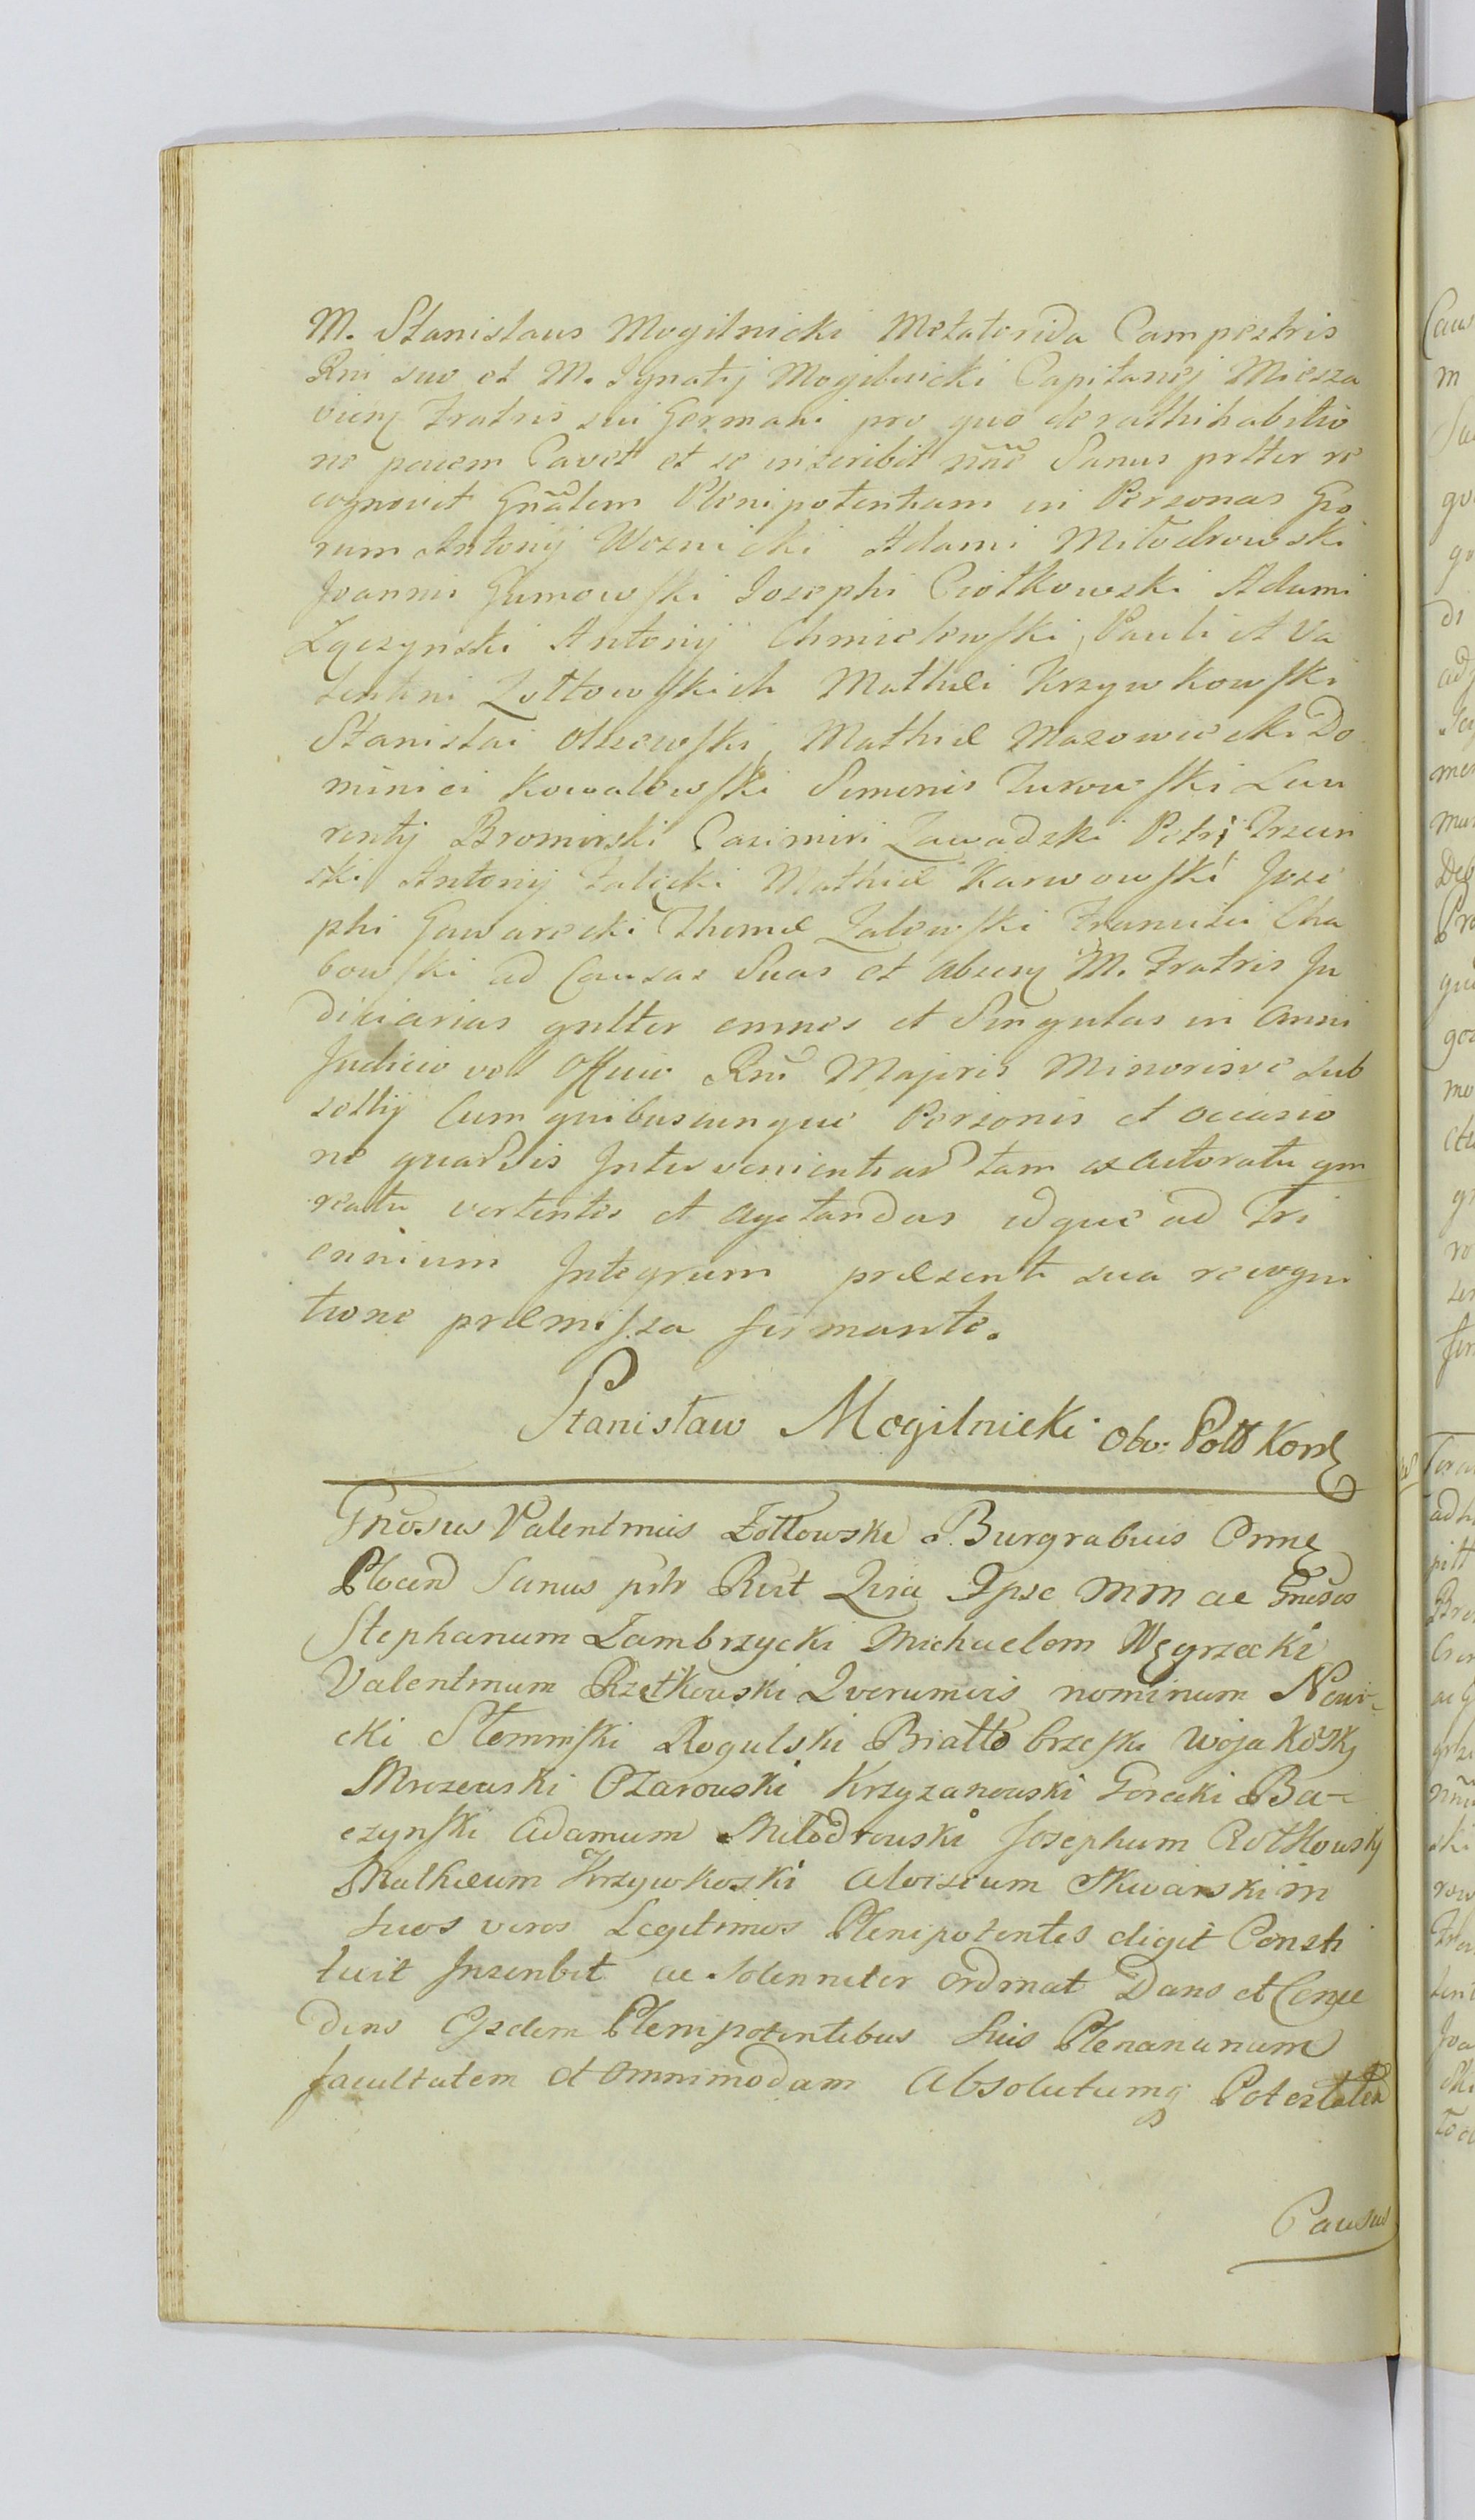 M. Stanislaus Mogilnicki Metatorida Campestris
Rni suo et M. Ignatij Mogilnicki Capitanej Miesza
vien Fratris sui Germani pro quo de rathihabitio
ne pariem Cavet et se inscribit nnẽ Sanus prtter re
cognovit Gnãlem Plenipotentiam in Personas Gro
rum Antonij Woznicki Adami Miłodrowski
Joannis Gumowski Josephi Ciołkowski Adami
Łączynski Antonij Chmielewski, Pauli et Va
lentini Zołtowskich Mathæi Krzywkowski
Stanislai Olszewski, Mathiæ Mazowiecki Do
minici Kowalewski Simonis Turowski Lau
rentij Bromirski Casimiri Zawadzki Petri Trzcin
ski Antonij Zalęcki Mathiæ Karwowski Jose
phi Gawarecki Thomæ Zalewski Francisci Cha
bowski ad Causas Suas et absen M. Fratris Ju
diciarias gnltter omnes et Singulas in omni
Judicio vel Officio Rni Majoris Minorisve Sub
sellij Cum quibuscunque Personis et occasio
ne quarvis Intervenientiar tam ex actoratu qm
reatu vertentes et agitandas idque ad Tri
ennium Integrum præsenti sua recogni
tione præmissa firmante.
Stanisław Mogilnicki Obo: Pol Kor
Gnosus Valentinus Zołtowski Burgrabius Crnẽ
Plocen Sanus prtr Rcit Quia Ipse MM ac Gnosos
Stephanum Zambrzycki Michaelem Węgrzecki
Valentinum Rzetkowski Qvorumvis nominum Nowi-
cki Słominski Rogulski Białłobrzeski Wojakoski
Mrozewski Ozarowski Krzyzanowski Gorecki Ba-
czynski Adamum Miłodrowski Josephum Ciołkowski
Mathæum Krzywkoski Aloisium Skwarski in
Suos veros Legitimos Plenipotentes eligit Consti
tuit Inscribit ac Solenniter ordinat Dans et Conce
dens Ejsdem Plenipotentibus Suis Plenariam
facultatem et omnimodam Absolutamq Potestatem
Causas